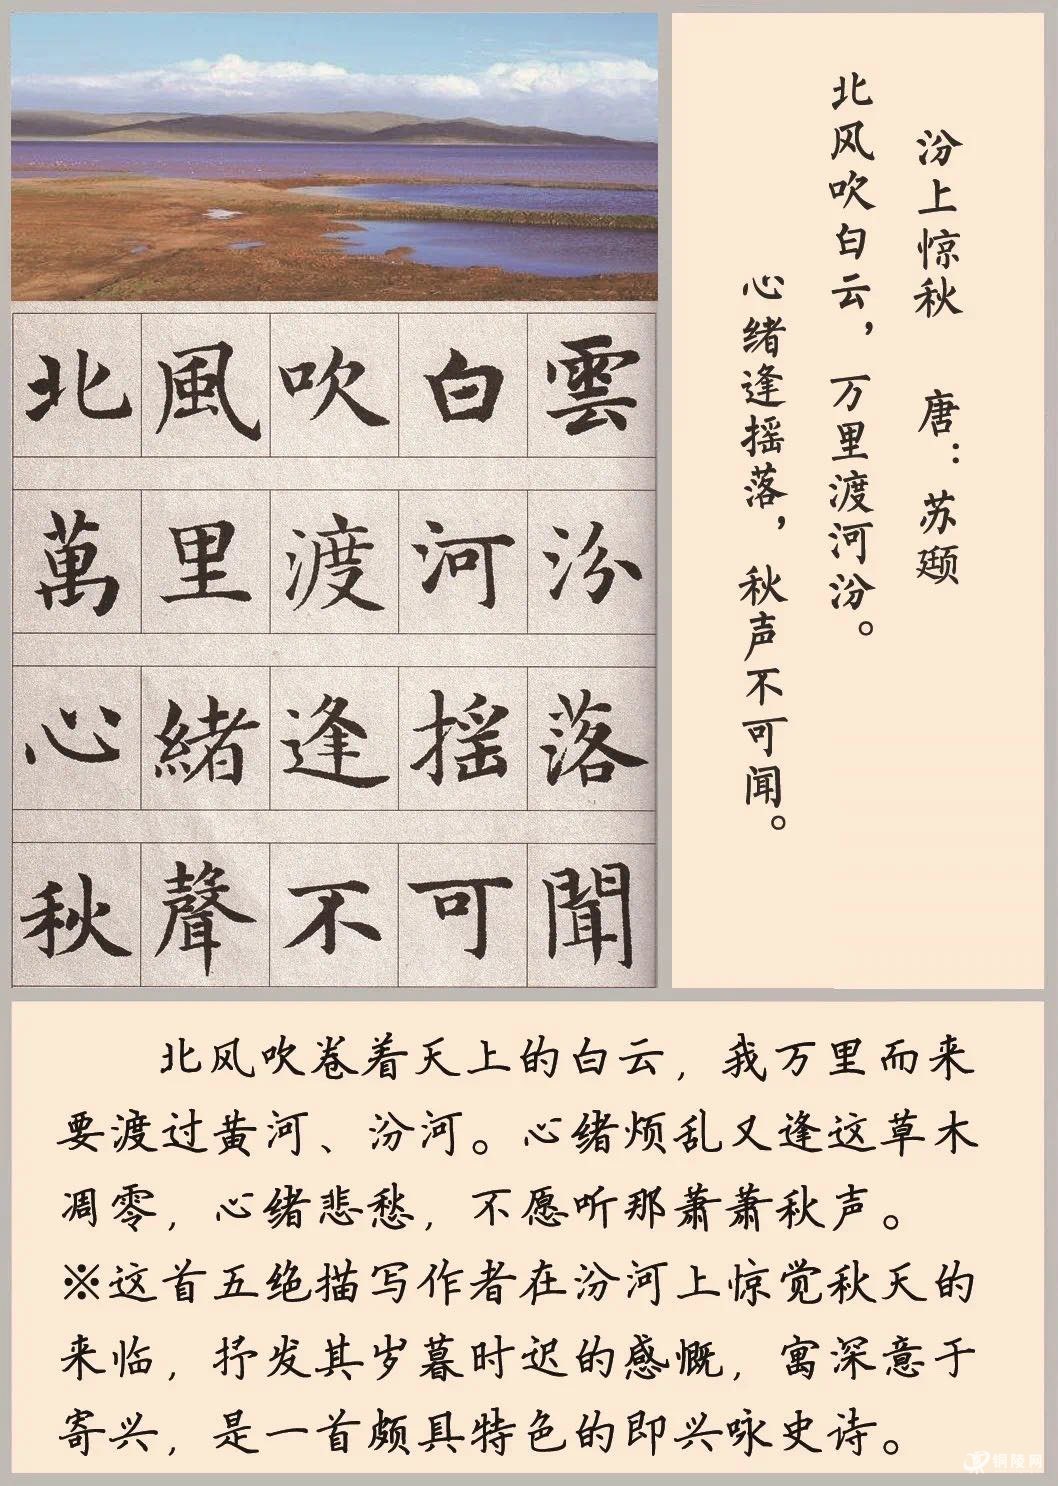 北風吹白雲
萬里渡河汾
心緒逢摇落
秋聲不可聞
汾上惊秋 唐：苏颋
北风吹白云，万里渡河汾。
心绪逢摇落，秋声不可闻。
北风吹卷着天上的白云，我万里而来
要渡过黄河、汾河。心绪烦乱又逢这草木
凋零，心绪悲愁，不愿听那萧萧秋声。
※这首五绝描写作者在汾河上惊觉秋天的
来临，抒发其岁暮时迟的感慨，寓深意于
寄兴，是一首颇具特色的即兴咏史诗。
铜陵网